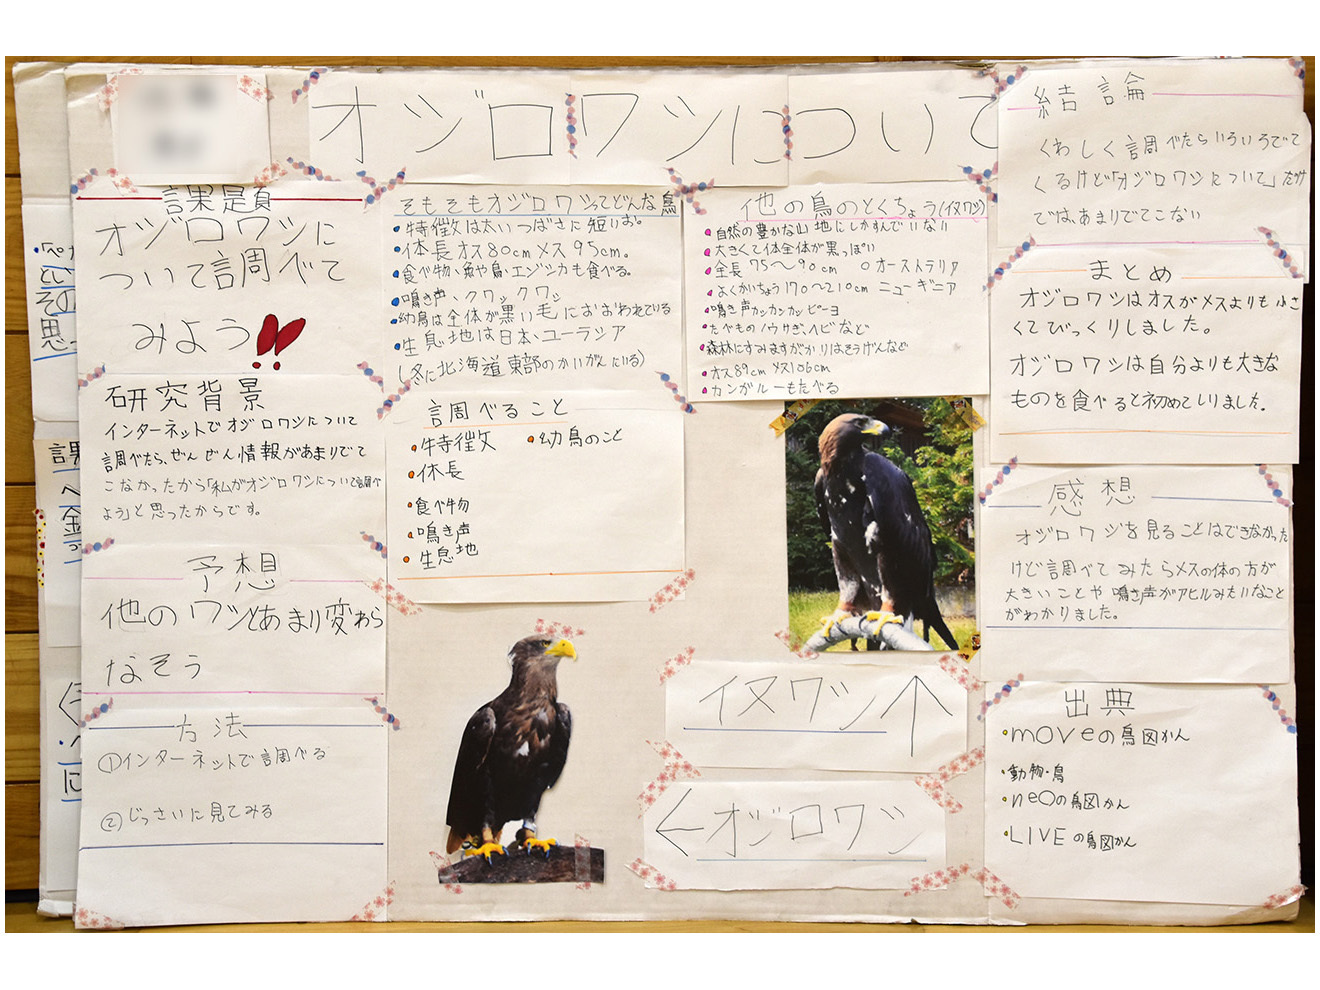 オジロワシについて
課題
オジロワシに
ついて調べて
みよう!!
研究背景
インターネットでオジロワシについて
調べたら、ぜんぜん情報があまりでて
こなかったから「私がオジロワシについて調べ
よう」と思ったからです。
予想
他のワシとあまり変わら
なそう
方法
①インターネットで調べる
②じっさいに見てみる
そもそもオジロワシってどんな鳥
・特徴は太いつばさに短いお。
・体長オス80cmメス95cm。
・食べ物、魚や鳥、エゾシカも食べる。
・鳴き声、クワックワッ
・幼鳥は全体が黒い毛におおわれている
・生息地は日本、ユーラシア
(冬に北海道東部のかいがんにいる)
調べること
・特徴 ・幼鳥のこと
・体長
・食べ物
・鳴き声
・生息地
他の鳥のとくちょう(イヌワシ)
・自然の豊かな山地にしかすんでいない
・大きくて体全体が黒っぽい
・全長75〜90cm ○オーストラリア
・よくかいちょう170〜210cm ニューギニア
・鳴き声カッカンカッピーヨ
・たべものノウサギ、ヘビなど
・森林にすみますがかりはそうげんなど
・オス89cm メス106cm
・カンガルーもたべる
イヌワシ↑
←オジロワシ
結論
くわしく調べたらいろいろでて
くるけど「オジロワシについて」だけ
では、あまりでてこない
まとめ
オジロワシはオスがメスよりも小さ
くてびっくりしました。
オジロワシは自分よりも大きな
ものを食べると初めてしりました。
感想
オジロワシを見ることはできなかった
けど調べてみたらメスの体の方が
大きいことや鳴き声がアヒルみたいなこと
がわかりました。
出典
・moveの鳥図かん
・動物・鳥
・neoの鳥図かん
・LIVEの鳥図かん